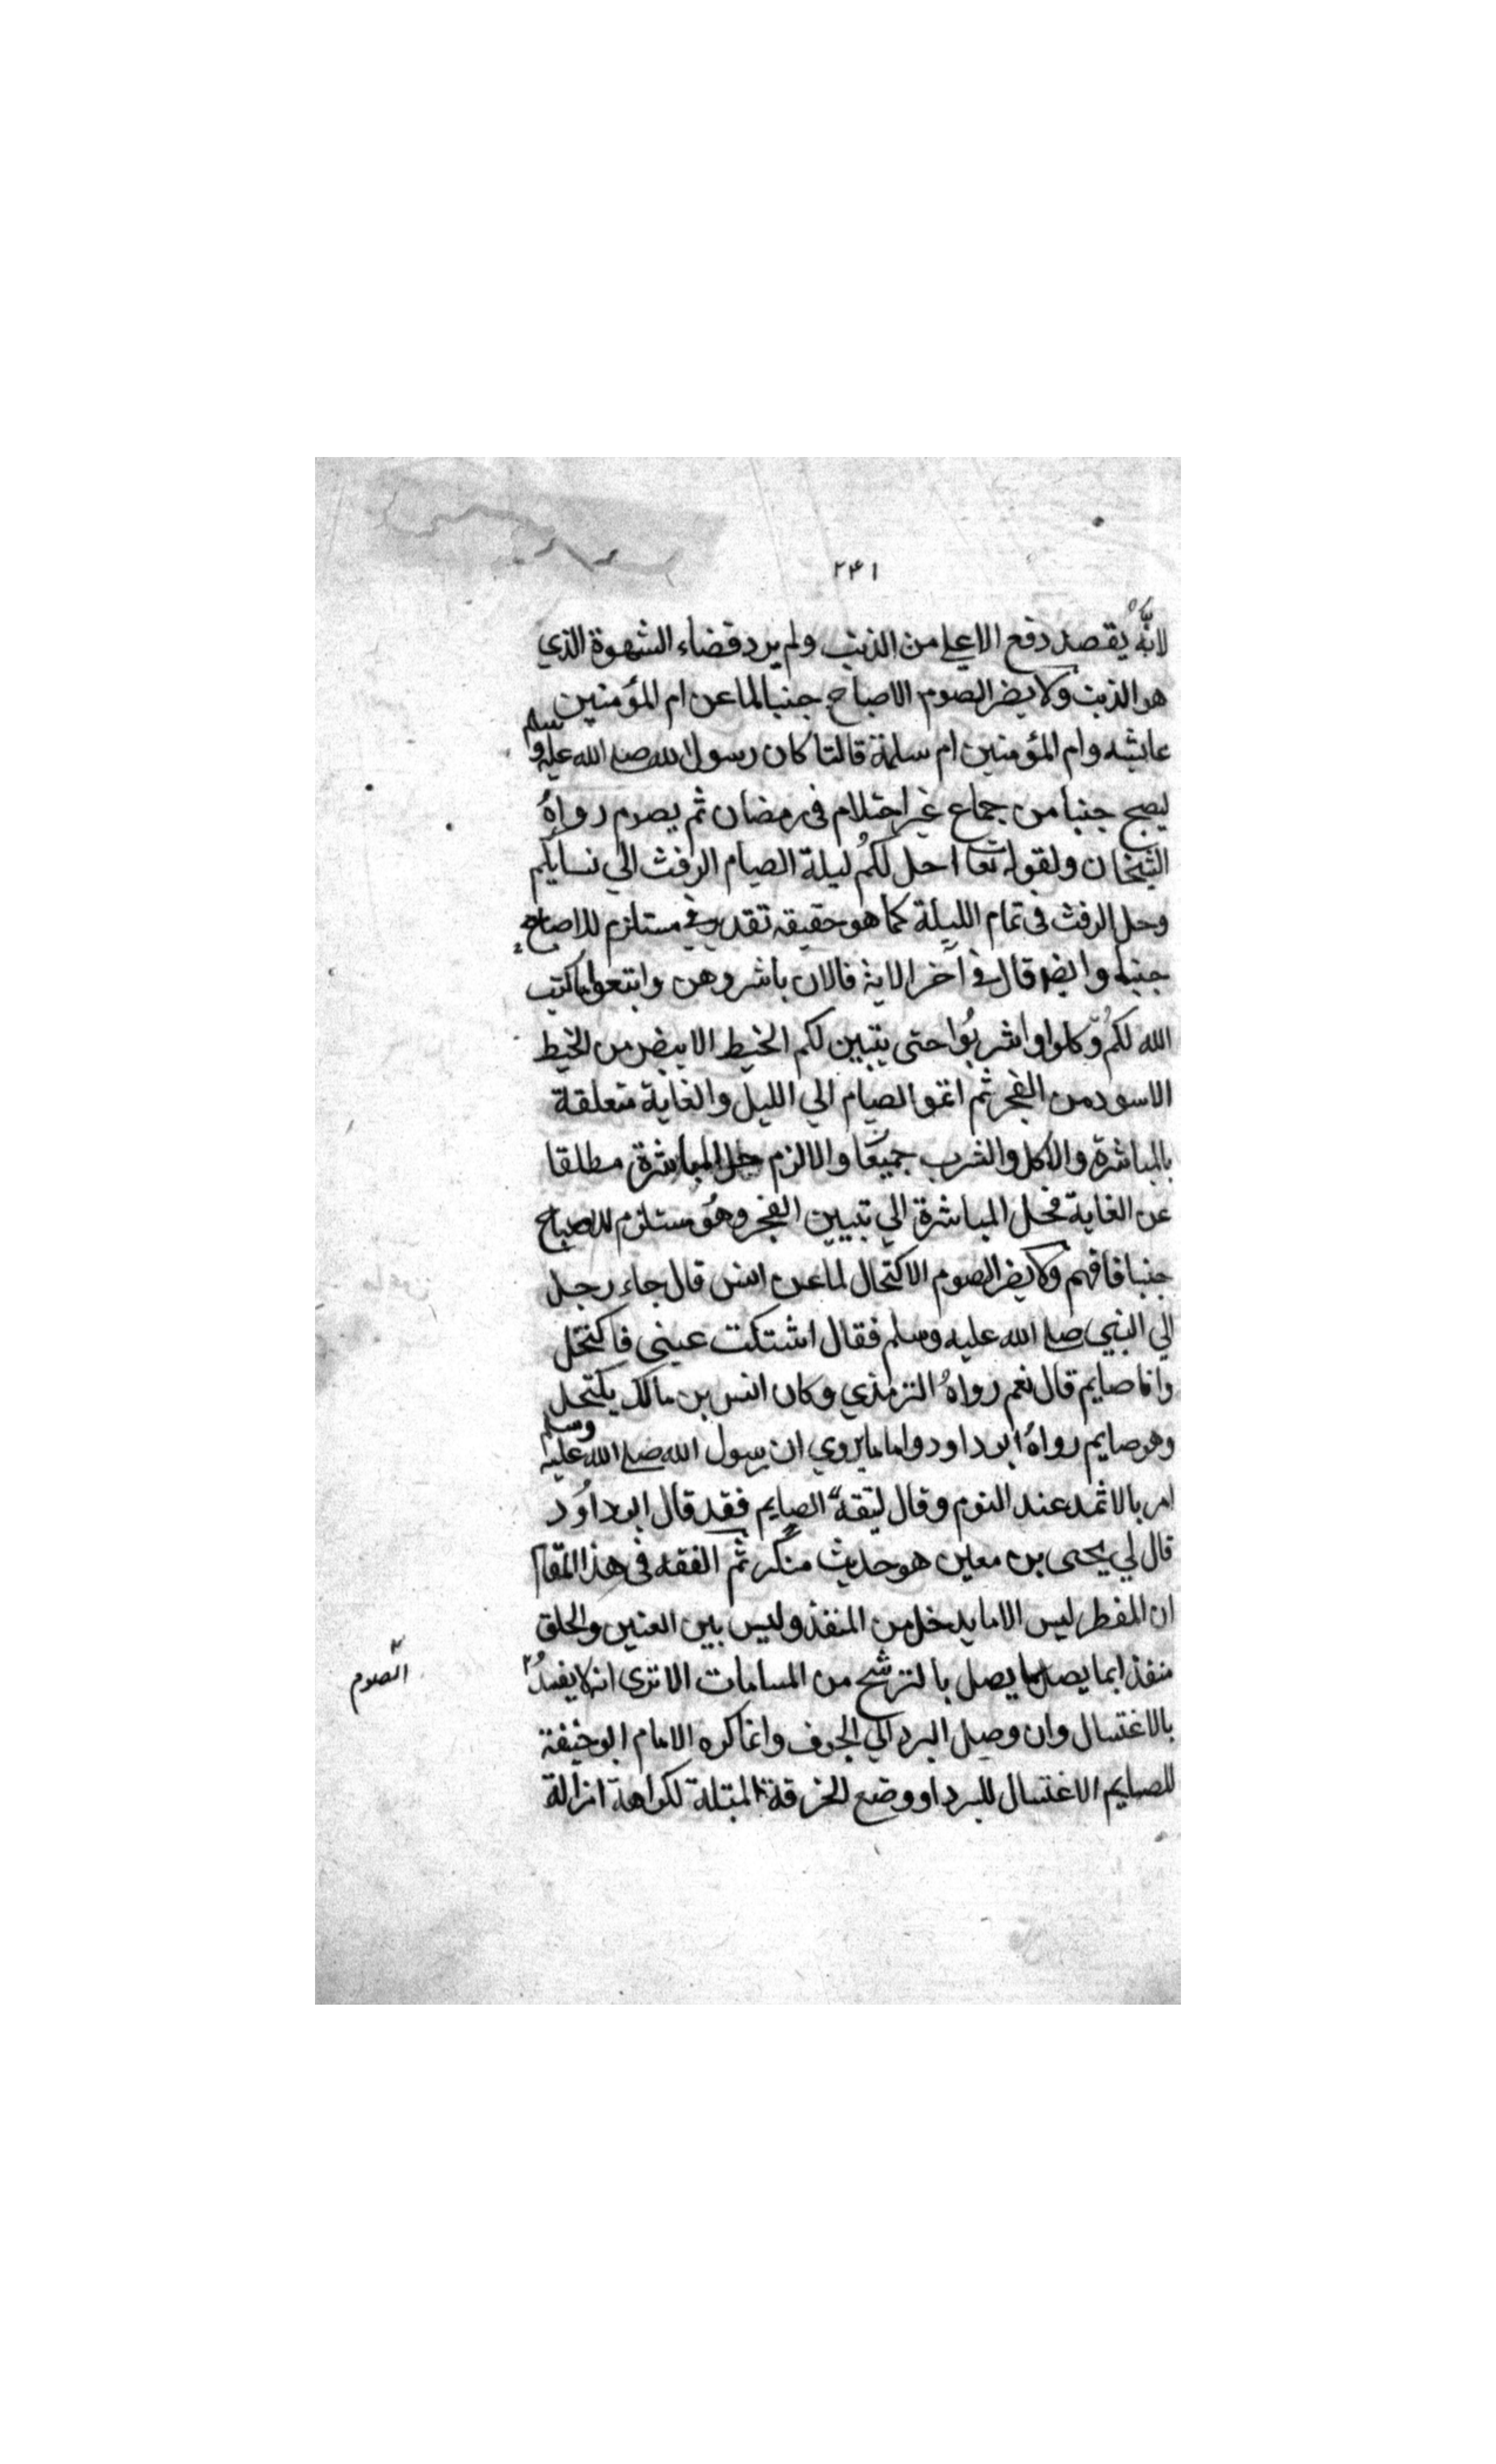 ٢٤١
لانه يقصد دفع الاعلي من الذنب ولم يرد قضاء الشهوة الذي
هو الذنب ولا يضر الصوم الاصباح جنبا لما عن ام المؤمنين
عايشه وام المؤمنين ام سلمة قالتا كان رسول الله صلى الله عليه وسلم
ليصبح جنبا من جماع غير احتلام في رمضان ثم يصوم رواهُ
الشيخان ولقوله تعا احل لكم ليلة الصيام الرفث الي نسايكم
وحل الرفث في تمام الليلة كما هو حقيقه تقدير في مستلزم للاصباح
جنبا وايضا قال في آخر الاية فالان باشروهن وابتغوا ما كتب
الله لكم وكلوا واشربُوا حتى يتبين لكم الخيط الابيض من الخيط
الاسود من الفجر ثم اتمو الصيام الي الليل والغاية متعلقة
بالمباشرة والاكل والشرب جميعًا والا لزم حل المباشرة مطلقا
عن الغاية فحل المباشرة الي تبيين الفجر وهُو مستلزم للاصباح
جنبا فافهم ولا يضر الصوم الاكتحال لما عن انس قال جاء رجل
الي النبي صلى الله عليه وسلم فقال اشتكت عيني فاكتحل
وانا صايم قال نعم رواهُ الترمذي وكان انس بن مالك يكتحل
وهو صايم رواهُ ابو داود واما ما يروي ان رسول الله صلى الله عليه وسلم
امر بالاثمد عند النوم وقال ليتقه الصايم فقد قال ابو داوُد
قال لي يحيى بن معين هو حديث منكر ثم الفقه في هذا المقام
ان المفطر ليس الا ما يدخل من المنفذ وليس بين العينين والحلق
منفذ انما يصل ما يصل بالترشح من المسامات الا ترى انه لا يفسدُ
الصوم
بالاغتسال وان وصل البرد الي الجوف وانما كره الامام ابو حنيفة
للصايم الاغتسال للبرد او وضع الخرقة المبتلة لكراهة ازالة